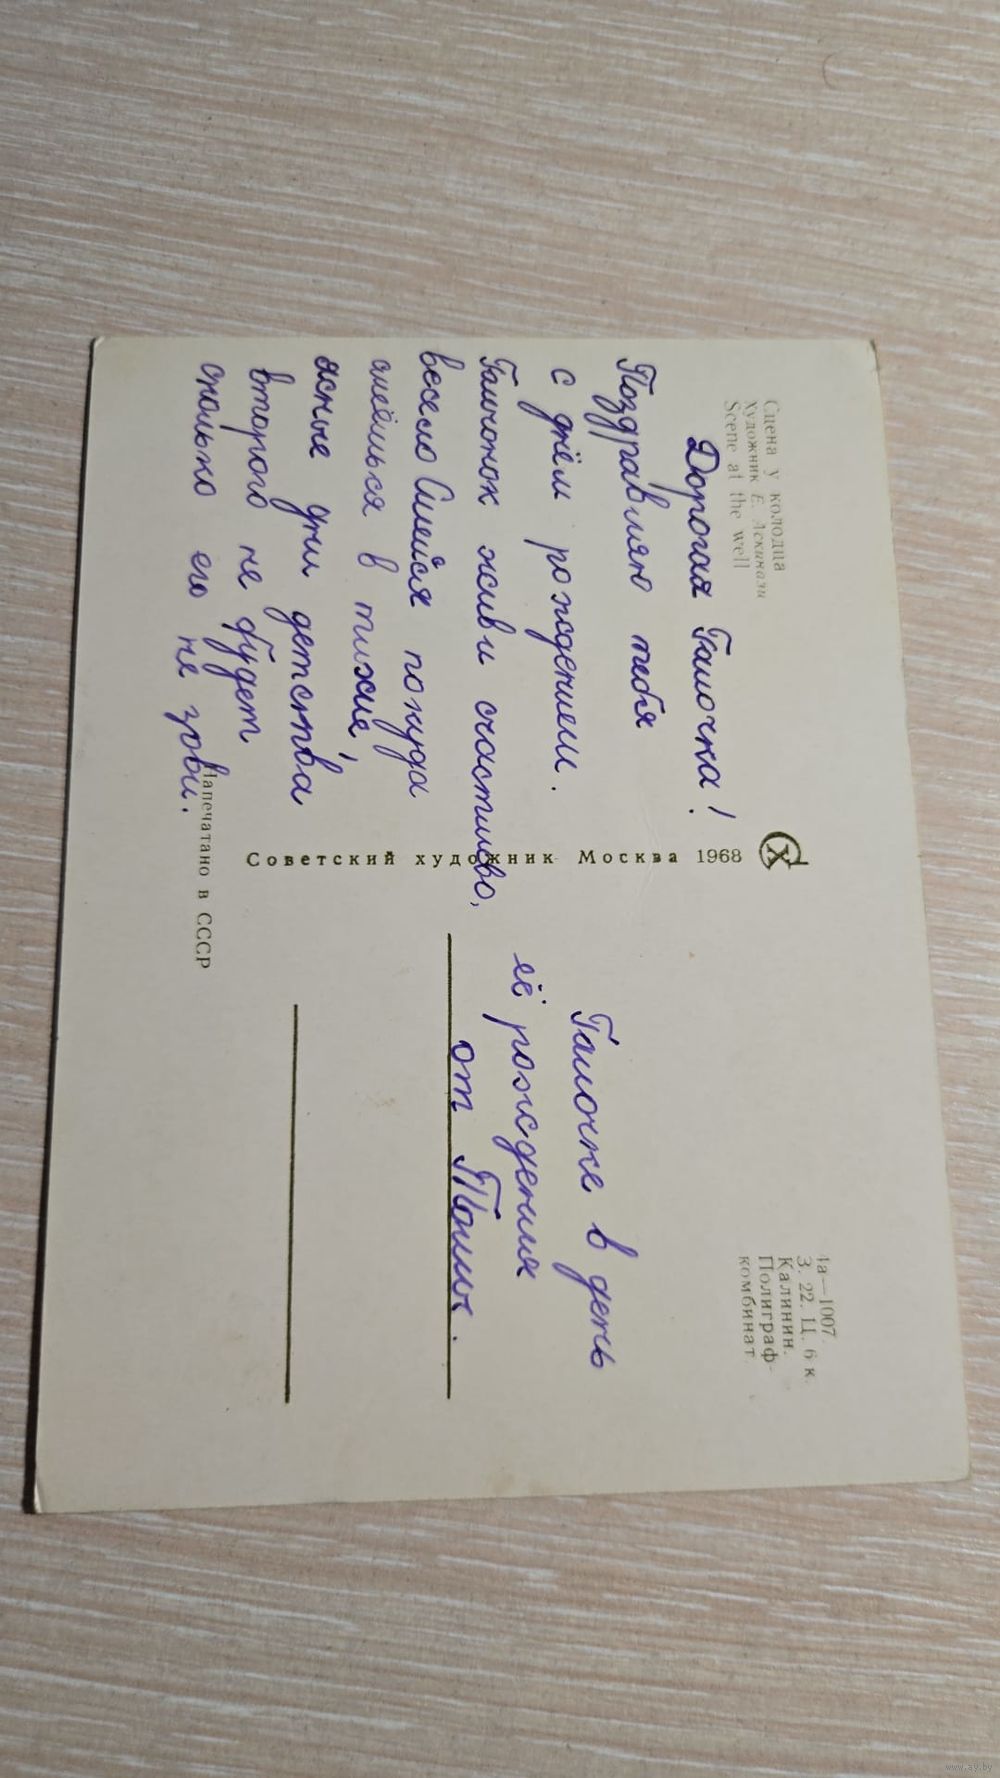 Сцена у колодца
Художник Е. Аскинази
Scene at the well
Дорогая Галочка!
Поздравляю тебя
с днём рождением.
Галчонок живи счастливо,
весело Смейся покуда
смеёшься в
ясные дни детства
второго не будет
сколько его не зови.
Советский художник Москва 1968
Напечатано в СССР
1а—1007.
З. 22. Ц. 6 к.
Калинин.
Полиграф-
комбинат
Галочке в день
её рождения
от
www.ay.by